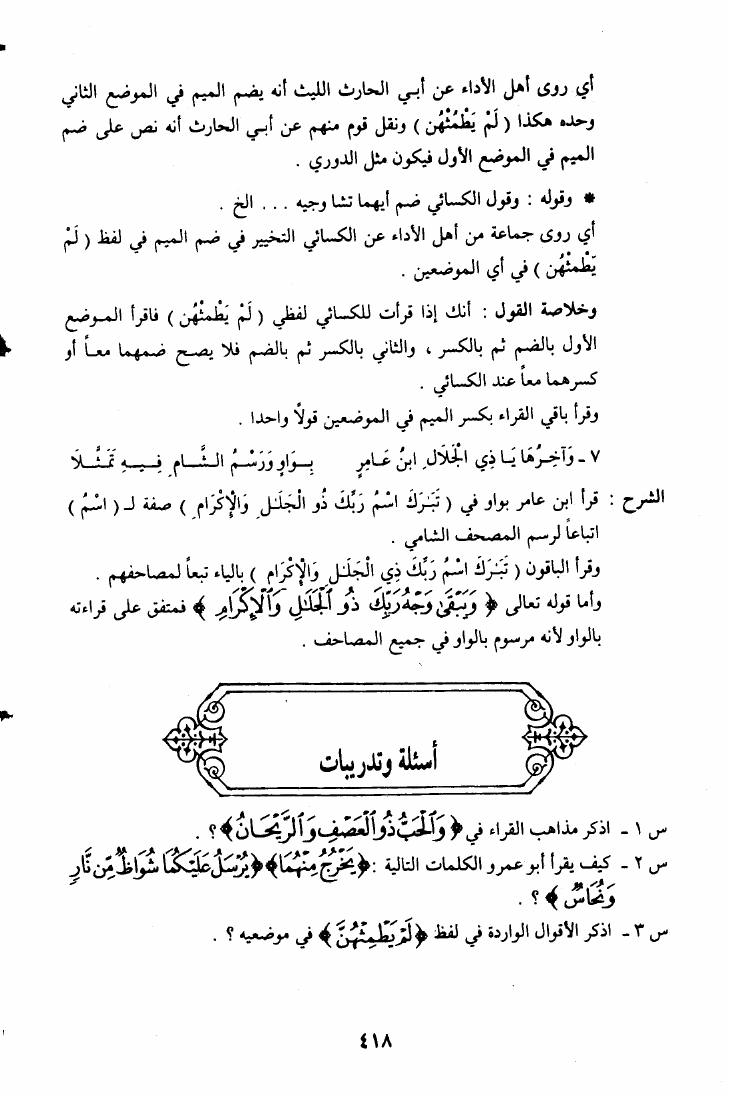 أي روى أهل الأداء عن أبي الحارث الليث أنه يضم الميم في الموضع الثاني
وحده هكذا ( لَمْ يَطْمُثْهُن ) ونقل قوم منهم عن أبي الحارث أنه نص على ضم
الميم في الموضع الأول فيكون مثل الدوري .
* وقوله : وقول الكسائي ضم أيهما تشا وجيه ... الخ .
أي روى جماعة من أهل الأداء عن الكسائي التخيير في ضم الميم في لفظ ( لَمْ
يَطْمِثْهُن ) في أي الموضعين .
وخلاصة القول : أنك إذا قرأت للكسائي لفظي ( لَمْ يَطْمِثْهُن ) فاقرأ الموضع
الأول بالضم ثم بالكسر ، والثاني بالكسر ثم بالضم فلا يصح ضمهما معاً أو
كسرهما معاً عند الكسائي .
وقرأ باقي القراء بكسر الميم في الموضعين قولًا واحدا .
٧ - وَآخِرُهَا يَا ذِي الْجَلَالِ ابنُ عَامِرٍ بِوَاوٍ وَرَسْمُ الشَّامِ فِيهِ تَمَثَّلَا
الشرح : قرأ ابن عامر بواو في ( تَبَٰرَكَ اسْمُ رَبِّكَ ذُو الْجَلَٰلِ وَالْإِكْرَامِ ) صفة لـ ( اسْمُ )
اتباعاً لرسم المصحف الشامي .
وقرأ الباقون ( تَبَٰرَكَ اسْمُ رَبِّكَ ذِي الْجَلَٰلِ وَالْإِكْرَامِ ) بالياء تبعاً لمصاحفهم .
وأما قوله تعالى ﴿ وَيَبْقَىٰ وَجْهُ رَبِّكَ ذُو ٱلْجَلَٰلِ وَٱلْإِكْرَامِ ﴾ فمتفق على قراءته
بالواو لأنه مرسوم بالواو في جميع المصاحف .
أسئلة وتدريبات
س ١ - اذكر مذاهب القراء في ﴿ وَٱلْحَبُّ ذُو ٱلْعَصْفِ وَٱلرَّيْحَانُ ﴾ ؟ .
س ٢ - كيف يقرأ أبو عمرو الكلمات التالية : ﴿ يَخْرُجُ مِنْهُمَا ﴾ ﴿ يُرْسَلُ عَلَيْكُمَا شُوَاظٌ مِّن نَّارٍ
وَنُحَاسٌ ﴾ ؟ .
س ٣ - اذكر الأقوال الواردة في لفظ ﴿ لَمْ يَطْمِثْهُنَّ ﴾ في موضعيه ؟ .
٤١٨